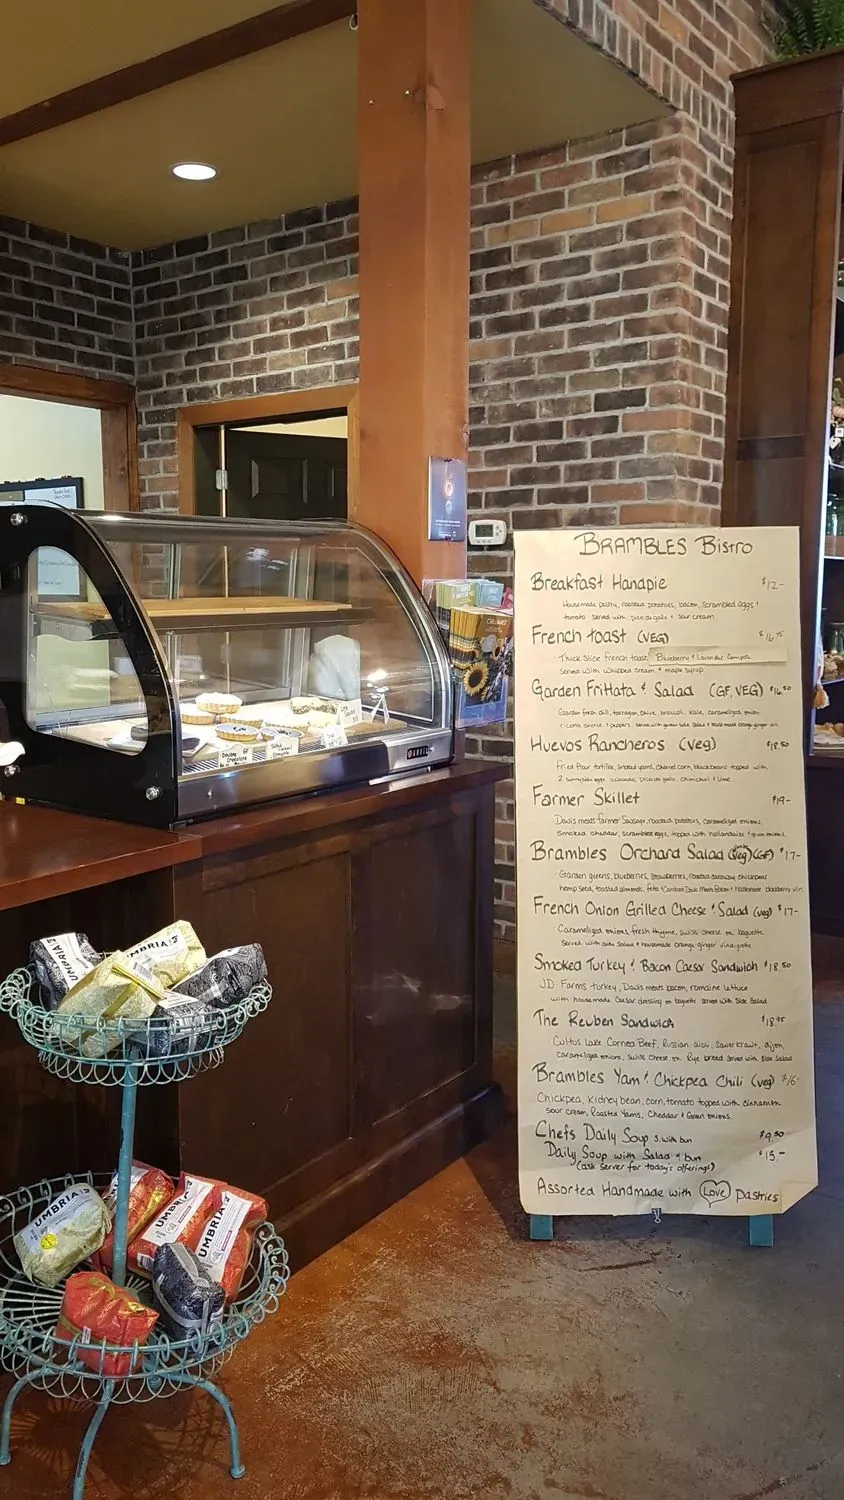 BRAMBLES Bistro
Breakfast Handpie $12-
Housemade pastry, roasted potatoes, bacon, scrambled eggs &
tomato served with pico de gallo & sour cream
French toast (VEG)
Thick slice french toast, Blueberry & Lavender Compote
Served with whipped cream & maple syrup
Garden Frittata & Salad (GF, VEG) $16.50
Garden fresh dill, tarragon, chive, broccoli, kale, caramelized onion
ricotta cheese & peppers. served with side salad & house made orange ginger vin.
Huevos Rancheros (veg) $18.50
Fried flour tortillas, smoked yams, charred corn, black beans topped with
2 sunnyside eggs avocado, pico de gallo, chimichuri & lime.
Farmer Skillet $19-
Dawis meats farmer sausage, roasted potatoes, caramelized onions,
Smoked cheddar, scrambled eggs, topped with hollandaise & green onions.
Brambles Orchard Salad (veg) (GF) $17-
Garden greens, blueberries, strawberries, roasted chickpeas
hemp seed, toasted almonds, feta & Candied Bacon & housemade blackberry vin
French Onion Grilled Cheese & Salad (veg) $17-
Caramelized onions, fresh thyme, swiss cheese on baguette
Served with side salad & housemade orange ginger vinaigrette
Smoked Turkey & Bacon Caesar Sandwich $18.50
J.D. Farms turkey, Dawis meats bacon, romaine lettuce
with housemade Caesar dressing on baguette served with Side Salad
The Reuben Sandwich $18.95
Cultus Lake Corned Beef, Russian aioli, sauerkraut, dijon,
caramelized onions, Swiss cheese on Rye bread served with Side Salad
Brambles Yam & Chickpea Chili (veg) $16-
Chickpea, Kidney bean, corn, tomato topped with cinnamon
sour cream, Roasted Yams, Cheddar & Green onions.
Chefs Daily Soup with bun $9.50
Daily Soup with Salad & bun $15.-
(ask server for today's offerings)
Assorted Handmade with Love pastries
UMBRIA
UMBRIA
UMBRIA
UMBRIA
UMBRIA
GF
Double Chocolate
Salted Caramel